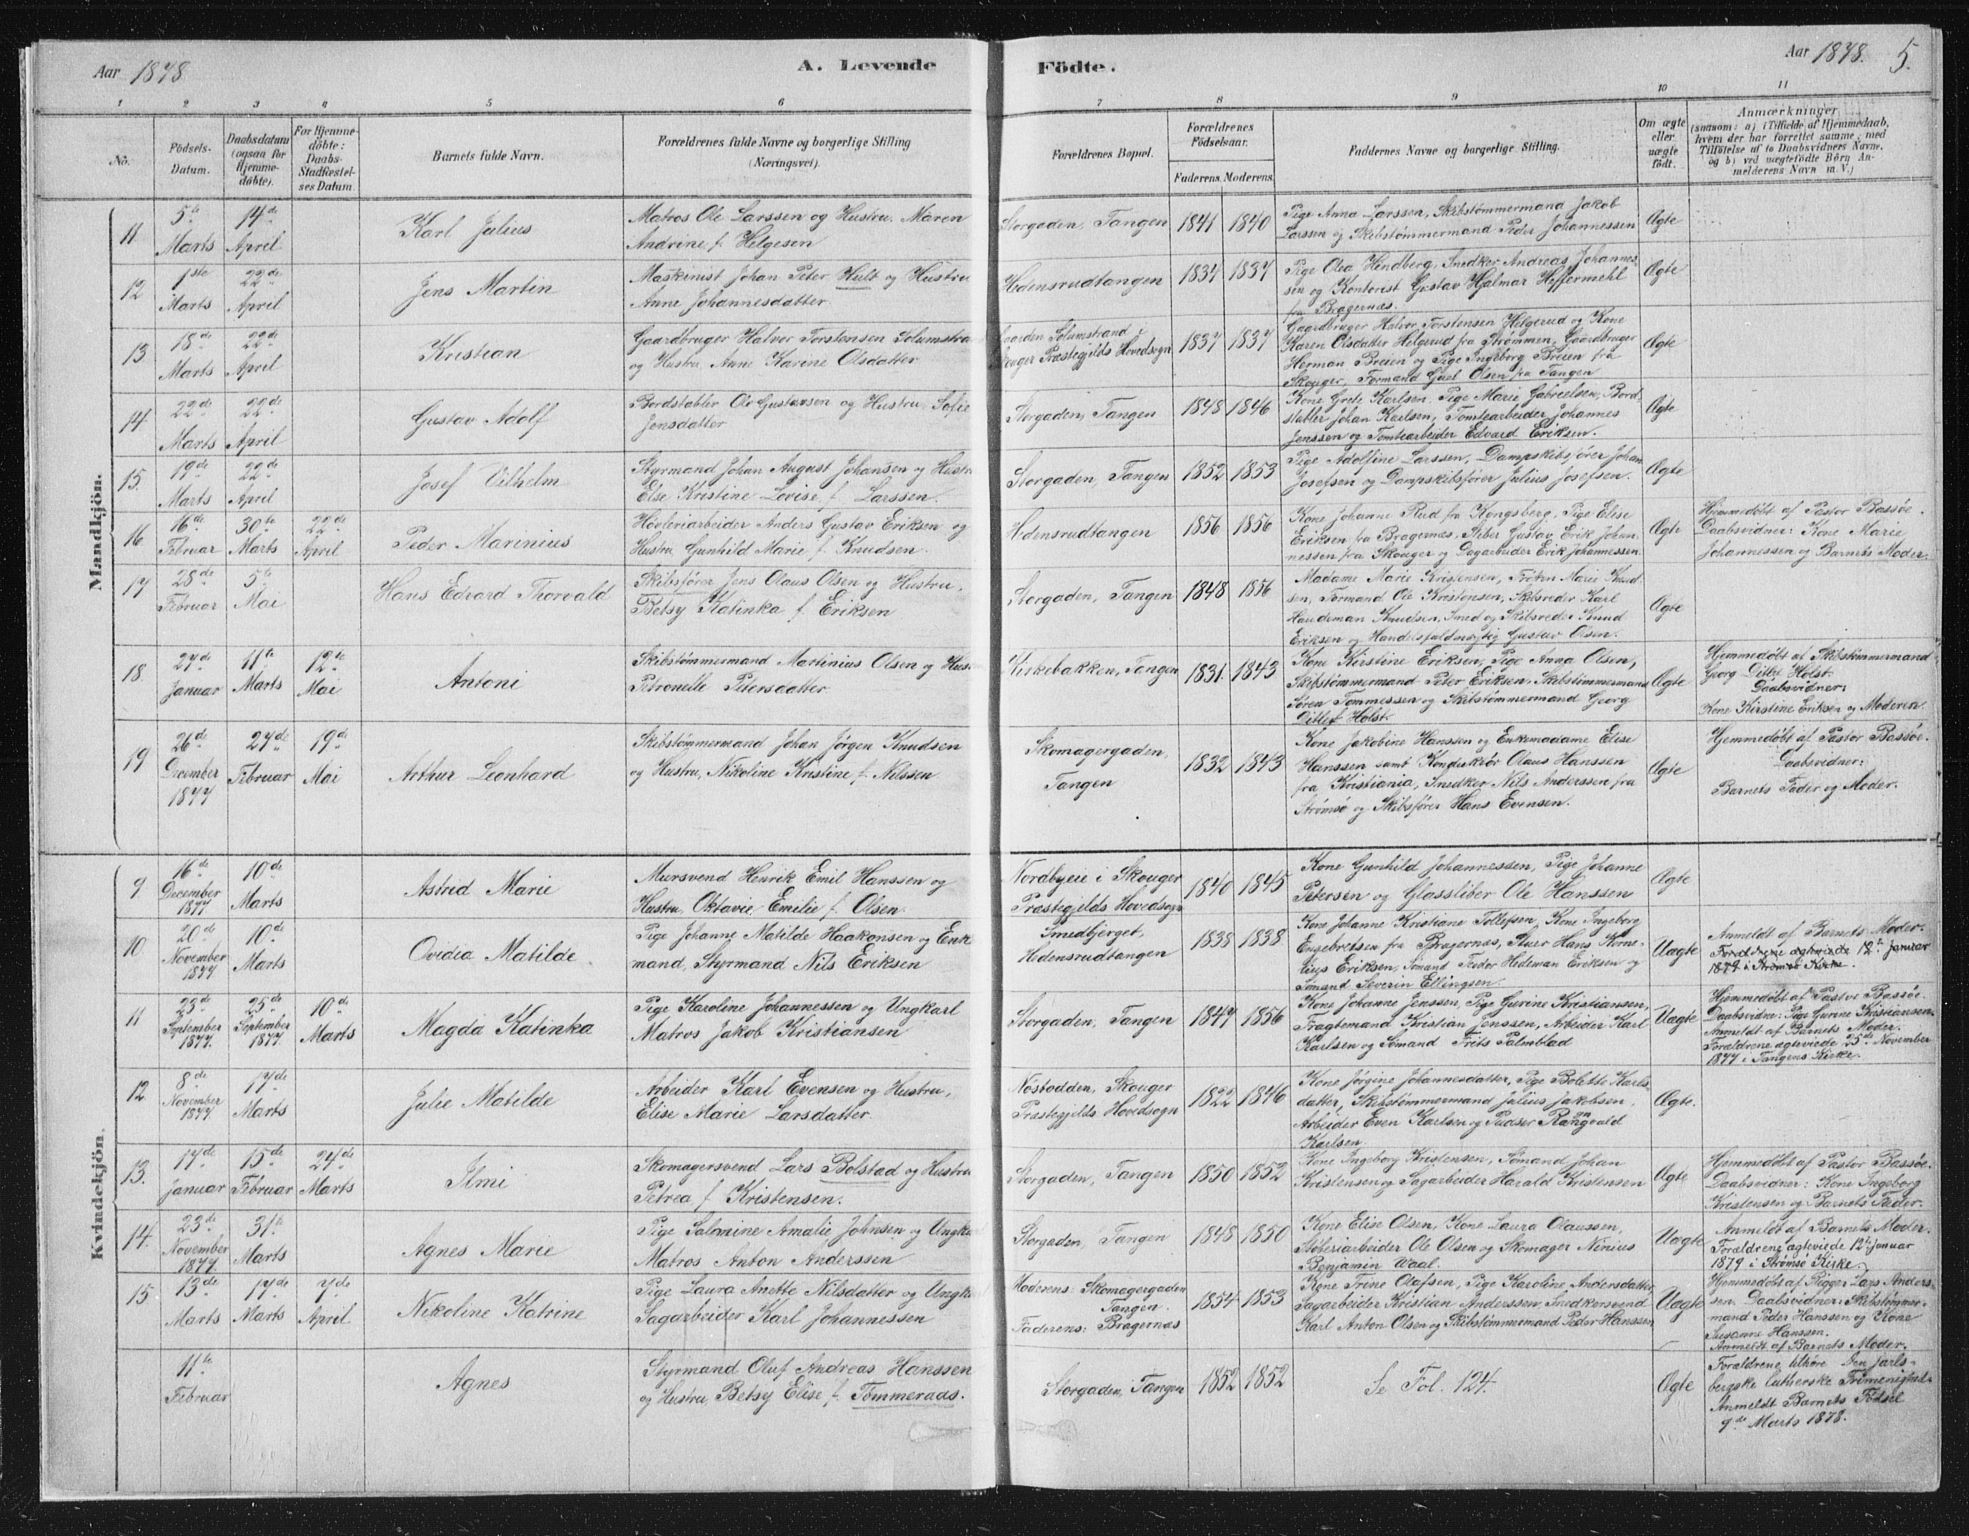 Aar 1878
A. Levende Födte.
Aar 1878. 5.
1 2 3 4 5 6 7 8 9 10 11
No.
Födsels-Datum.
Daabsdatum (ogsaa for Hjemme-döbte).
For Hjemme-döbte: Daabs-Stadfæstel-ses Datum.
Barnets fulde Navn.
Forældrenes fulde Navne og borgerlige Stilling (Næringsvei).
Forældrenes Bopæl.
Forældrenes Födselsaar.
Faderens. Moderens.
Faddernes Navne og borgerlige Stilling.
Om ægte eller uægte født.
Anmærkninger
(saasom: a) i Tilfælde af Hjemmedaab, hvem der har forrettet samme, med Tilföielse af to Daabsvidners Navne, og b) ved uægtefödte Börn Anmelderens Navn m. V.)
Mandkjön.
11 5te Marts 14de April
Karl Julius
Matros Ole Larssen og Hustru, Maren
Andrine f. Helgesen
Storgaden, Tangen 1841 1840
Pige Anna Larssen, Skibstømmermand Jakob
Larssen og Skibstømmermand Peder Johannessen
Ægte
12 1ste Marts 22de April
Jens Martin
Maskinist Johan Peter Hult og Hustru
Anne Johannesdatter
Hedensrudtangen 1837 1837
Pige Olea Hindberg, Snedker Andreas Johannes
sen og Kontorist Gustav Hjalmar Heffermehl
fra Bragernæs.
Ægte
13 18de Marts 22de April
Kristian
Gaardbruger Halvor Torstensen Solumstra
og Hustru Anne Karine Olsdatter
Gaarden Solumstrand i
Skouger Præstegjelds Hovedsogn
1837 1837
Gaardbruger Halvor Torstensen Helgerud og Kone
Karen Olsdatter Helgerud fra Strømmen, Gaardbruger
Herman Breien og Pige Ingeborg Breien fra
Skouger, Formand Gael Olsen fra Tangen
Ægte
14 22de Marts 22de April
Gustav Adolf
Bordstabler Ole Gustavsen og Hustru, Sofie
Jensdatter
Storgaden, Tangen 1848 1846
Kone Grete Karlsen, Pige Marie Gabrielsen, Bord
stabler Johan Karlsen, Tomtearbeider Johannes
Jenssen og Tomtearbeider Edvard Eriksen.
Ægte
15. 19de Marts 22de April
Josef Vilhelm
Styrmand Johan August Johansen og Hustru
Else Kristine Lovise f. Larssen.
Storgaden, Tangen 1852 1853
Pige Adolfine Larssen, Dampskibsfører Johan
Josefsen og Dampskibsfører Julius Josefsen.
Ægte
16 16de Februar 30te Marts 22de April
Peder Marinius
Høvleriarbeider Anders Gustav Eriksen og
Hustru, Gunhild Marie f. Knudsen.
Hedensrudtangen 1856 1856
Kone Johanne Rud fra Kongsberg, Pige Elise
Eriksen fra Bragernæs, Støber Gustav Erik Johan
nessen fra Skouger og Dagarbeider Erik Johannessen
Ægte
Hjemmedøbt af Pastor Bassøe.
Daabsvidner: Kone Marie
Johannessen og Barnets Moder.
17 28de Februar 5te Mai
Hans Edvard Thorvald
Skibsfører Jens Olaus Olsen og Hustru,
Betsy Katinka f. Eriksen
Storgaden, Tangen 1848 1856
Madame Marie Kristensen, Frøken Marie Knud
sen, Formand Ole Kristensen, Skibsreder Karl
Haudeman Knudsen, Smed og Skibsreder Knud
Eriksen og Handelsfuldmægtig Gustav Olsen.
Ægte
18. 27de Januar 11te Marts 12te Mai
Antoni
Skibstømmermand Martinius Olsen og Hus
Petronelle Petersdatter
Kirkebakken, Tangen 1831. 1843
Kone Kirstine Eriksen, Pige Anna Olsen,
Skibstømmermand Peter Eriksen, Skibstømmermand
Søren Tommessen og Skibstømmermand Georg
Ditlef Holst.
Ægte
Hjemmedøbt af Skibstømmermand
Georg Ditlef Holst.
Daabsvidner:
Kone Kirstine Eriksen og Moderen.
19 26de December 1877 27de Februar 19de Mai
Arthur Leonhard
Skibstømmermand Johan Jørgen Knudsen
og Hustru, Nikoline Kristine f. Nilssen
Skomagergaden,
Tangen
1832 1843
Kone Jakobine Hanssen og Enkemadame Elise
Hanssen samt Konduktør Olaus Hanssen
fra Kristiania, Snedker Nils Anderssen fra
Strømsø og Skibsfører Hans Evensen.
Ægte
Hjemmedøbt af Pastor Bassøe.
Daabsvidner:
Barnets Fader og Moder.
Kvindekjön.
9 16de December 1877 10de Marts
Astrid Marie
Mursvend Henrik Emil Hanssen og
Hustru, Oktavie Emilie f. Olsen
Nordbyeie i Skouger
Præstegjelds Hovedsogn
1840 1845
Kone Gunhild Johannessen, Pige Johanne
Petersen og Glassliber Ole Hanssen
Ægte
10 20de November 1877 10de Marts
Ovidia Matilde
Pige Johanne Matilde Haakonsen og Enke
mand, Styrmand Nils Eriksen
Smedbjerget,
Hedensrudtangen
1838 1838
Kone Johanne Kristiane Tollefsen, Kone Ingeborg
Engebretsen fra Bragernæs, Stuer Hans Korne-
lius Eriksen, Sømand Fedor Hedeman Eriksen og
Sømand Severin Ellingsen.
Uægte
Anmeldt af Barnets Moder.
Forældrene ægteviede 12te Januar
1879 i Strømsø Kirke.
11 23de September 1877. 25de September 1877 10de Marts
Magda Katinka
Pige Karoline Johannessen og Ungkarl
Matros Jakob Kristiansen
Storgaden, Tangen 1849 1856
Kone Johanne Jenssen, Pige Gurine Kristiansen,
Fragtemand Kristian Jenssen, Arbeider Karl
Karlsen og Sømand Frits Palmblad
Uægte
Hjemmedøbt af Pastor Bassøe.
Daabsvidne: Pige Gurine Kristiansen.
Anmeldt af Barnets Moder.
Forældrene ægteviede 25de November
1877 i Tangens Kirke.
12 8de November 1877 17de Marts
Julie Matilde
Arbeider Karl Evensen og Hustru,
Elise Marie Larsdatter
Nøstodden, Skouger
Præstegjelds Hovedsogn
1822 1846
Kone Jørgine Johannesdatter, Pige Bolette Karls
datter, Skibstømmermand Julius Jakobsen,
Arbeider Even Karlsen og Pudser Rangvald
Karlsen
Ægte.
13. 17de Januar 15de Februar 24de Marts
Ilmi
Skomagersvend Lars Bolstad og Hustru
Petrea f. Kristensen.
Storgaden, Tangen 1850 1852
Kone Ingeborg Kristensen, Sømand Johan
Kristensen og Sagarbeider Harald Kristensen
Ægte
Hjemmedøbt af Pastor Bassøe.
Daabsvidner: Kone Ingeborg
Kristensen og Barnets Fader.
14. 23de November 1877. 31te Marts
Agnes Marie
Pige Salomine Amalie Johnsen og Ungka
Matros Anton Anderssen
Storgaden, Tangen 1848 1850
Kone Elise Olsen, Kone Laura Olaussen,
Støberiarbeider Ole Olsen og Skomager Ninius
Benjamin Waal.
Uægte
Anmeldt af Barnets Moder.
Forældrene ægteviede 12te Januar
1879 i Strømsø Kirke.
15. 13de Marts 17de Marts 7de April
Nikoline Katrine
Pige Laura Anette Nilsdatter og Ungka
Sagarbeider Karl Johannessen
Moderens: Skomagergaden
Tangen.
Faderens: Bragernæs
1854 1853
Kone Trine Olafsen, Pige Karoline Andersdatter,
Sagarbeider Kristian Anderssen, Snedkersvend
Karl Anton Olsen og Skibstømmermand Peder Hanssen
Uægte
Hjemmedøbt af Rigger Lars Anders-
sen. Daabsvidner: Skibstømmer-
mand Peder Hanssen og Kone
Susanne Hanssen.
Anmeldt af Barnets Moder.
11te Februar
Agnes
Styrmand Oluf Andreas Hanssen
og Hustru, Betsy Elise f. Tømmeraas.
Storgaden, Tangen 1852 1852
Se Fol. 124.
Ægte
Forældrene tilhøre den Jarls-
bergske lutherske Frimenighed.
Anmeldt Barnets Fødsel
9de Marts 1878.